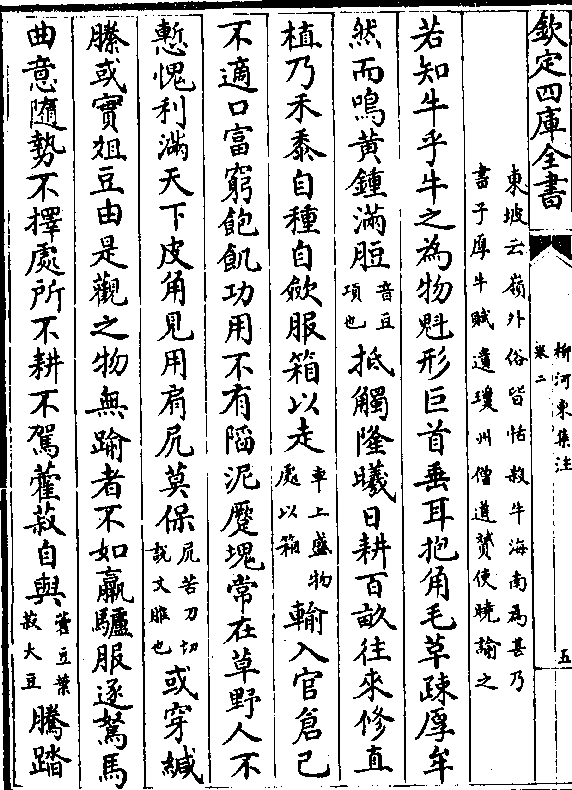 欽定四庫全書
柳河東集注
卷二
五
東坡云嶺外俗皆恬殺牛海南為甚乃
書子厚牛賦遺瓊州僧道贇使曉諭之
若知牛乎牛之為物魁形巨首垂耳抱角毛草疎厚牟
然而鳴黄鍾滿脰音豆項也抵觸隆曦日耕百畝往來修直
植乃禾黍自種自斂服箱以走車上盛物處以箱輸入官倉己
不適口富窮飽飢功用不有陷泥蹷塊常在草野人不
慙愧利滿天下皮角見用肩尻莫保尻苦刀切説文脽也或穿緘
縢或實俎豆由是觀之物無踰者不如羸驢服逐駑馬
曲意隨勢不擇處所不耕不駕藿菽自與藿豆葉菽大豆騰踏